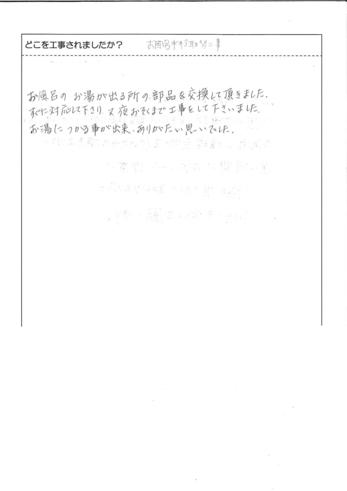 どこを工事されましたか？
お風呂の お湯が出る所の部品を交換して頂きました。
すぐに対応して下さり 又夜おそくまで工事をして下さいました。
お湯につかる事が出来、ありがたい思いでした。